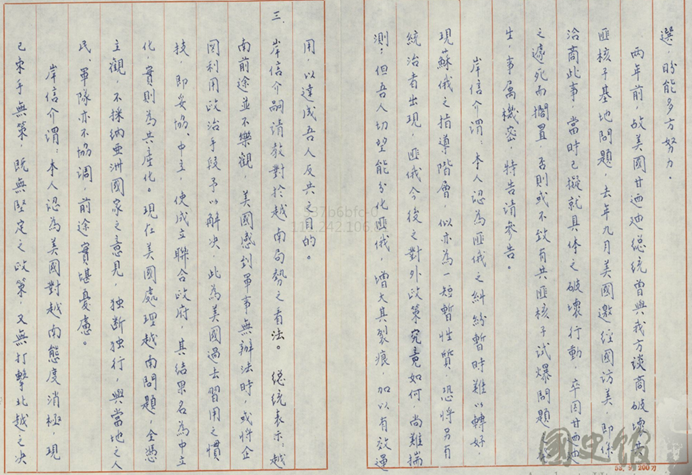 選，盼能多方努力。
兩年前，故美國甘迺地總統曾與我方談商破壞
匪核子基地問題，去年九月美國邀經國訪美，即係
洽商此事，當時已擬就具体之破壞行動，卒因甘迺地
之遽死而擱置，否則或不致有共匪核子試爆問題發
生，事屬機密，特告請參告。
岸信介謂：本人認為匪俄之糾紛暫時難以轉好，
現蘇俄之指導階層，似亦為一短暫性質，恐將另有
統治者出現，匪俄今後之對外政策究竟如何，尚難揣
測，但吾人切望能分化匪俄，增大其裂痕，加以有效運
用，以達成吾人反共之目的。
三、岸信介嗣請教對於越南局勢之看法。總統表示：越
南前途並不樂觀，美國感到軍事無辦法時，或將企
圖利用政治手段予以解決，此為美國過去習用之慣
技，即妥協、中立，使成立聯合政府，其結果名為中立
化，實則為共產化。現在美國處理越南問題，全憑
主觀，不採納亞洲國家之意見，獨斷獨行，與當地之人
民、軍隊亦不協調，前途實堪憂慮。
岸信介謂：本人認為美國對越南態度消極，現
已束手無策，既無堅定之政策，又無打擊北越之決
國史館